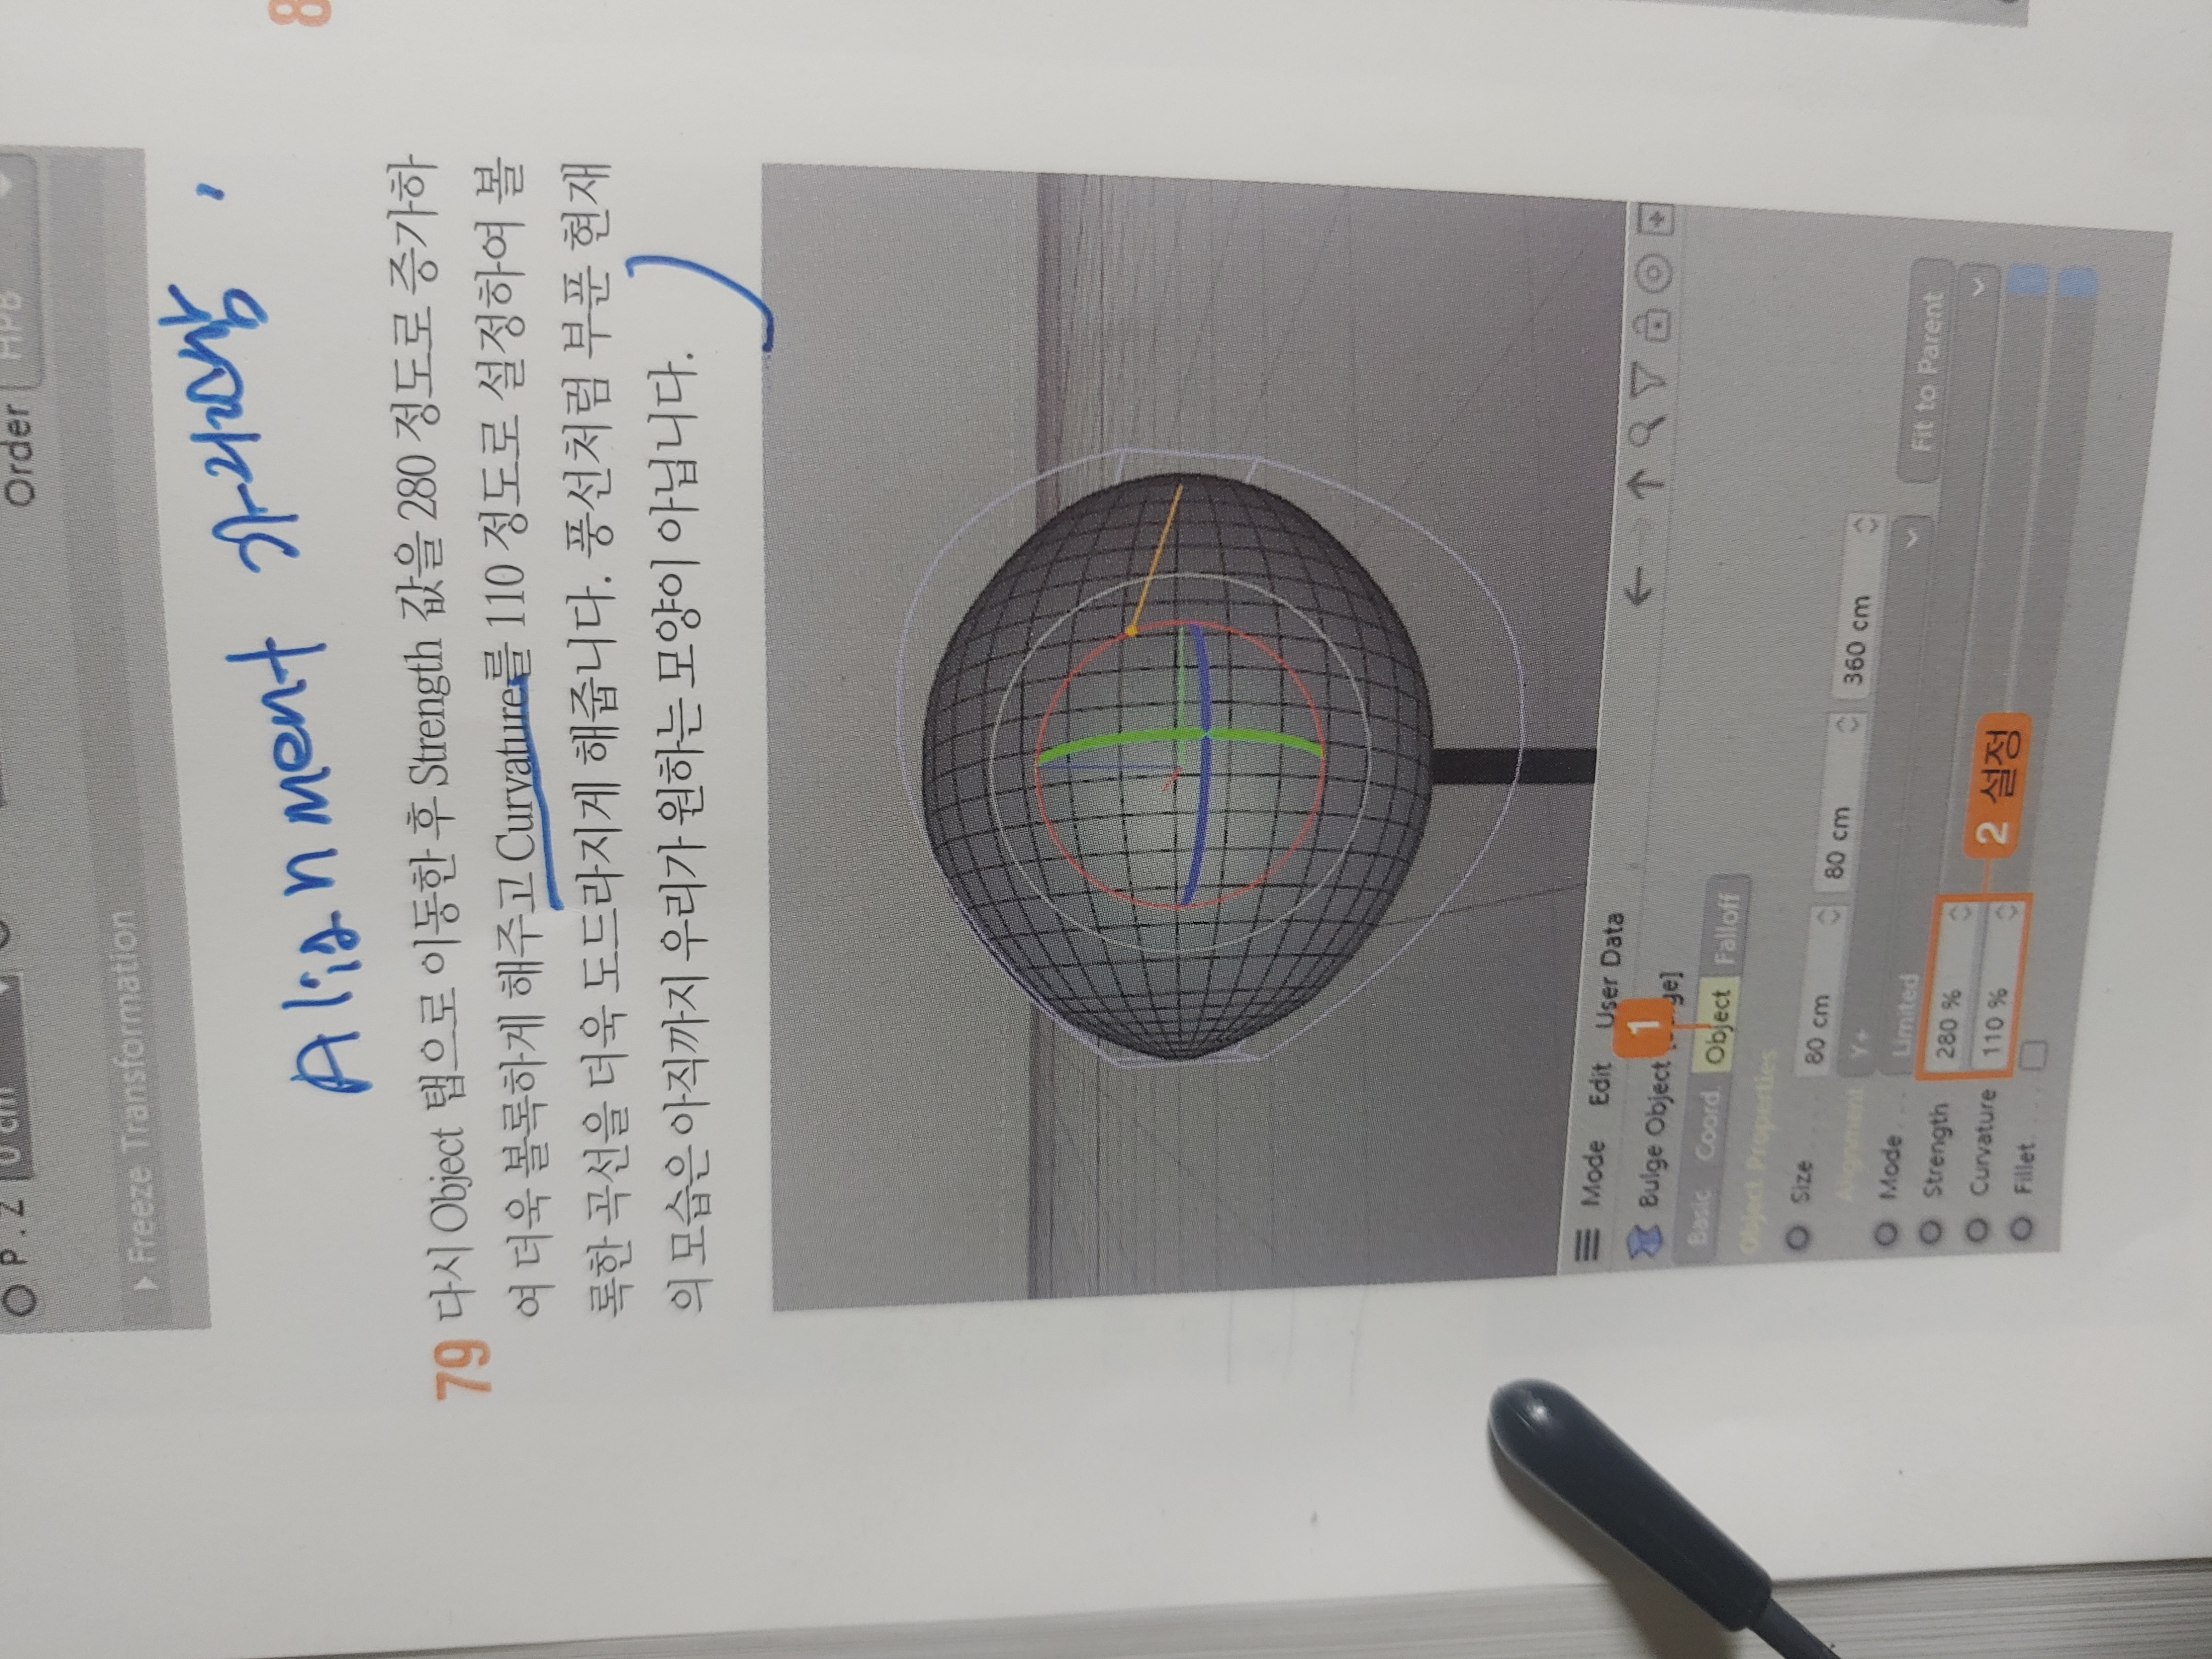 Order
HPB
P . Z
0 cm
Freeze Transformation
Alignment
79 다시 Object 탭으로 이동한 후 Strength 값을 280 정도로 증가하
여 더욱 볼록하게 해주고 Curvature를 110 정도로 설정하여 볼
록한 곡선을 더욱 도드라지게 해줍니다. 풍선처럼 부푼 현재
의 모습은 아직까지 우리가 원하는 모양이 아닙니다.
Mode Edit User Data
Bulge Object
1
Basic Coord Object Falloff
Object Properties
Size 80 cm 80 cm 360 cm
Alignment Y+
Fit to Parent
Mode Limited
Strength 280 %
Curvature 110 %
2 설정
Fillet